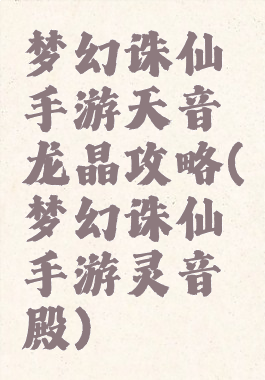 梦幻诛仙
手游天音
龙晶攻略(
梦幻诛仙
手游灵音
殿)